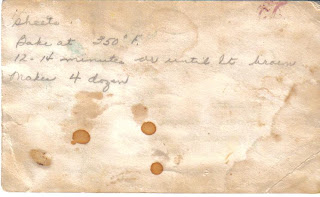 sheets.
Bake at 350° F.
12-14 minutes or until lt. brown
Makes 4 dozen